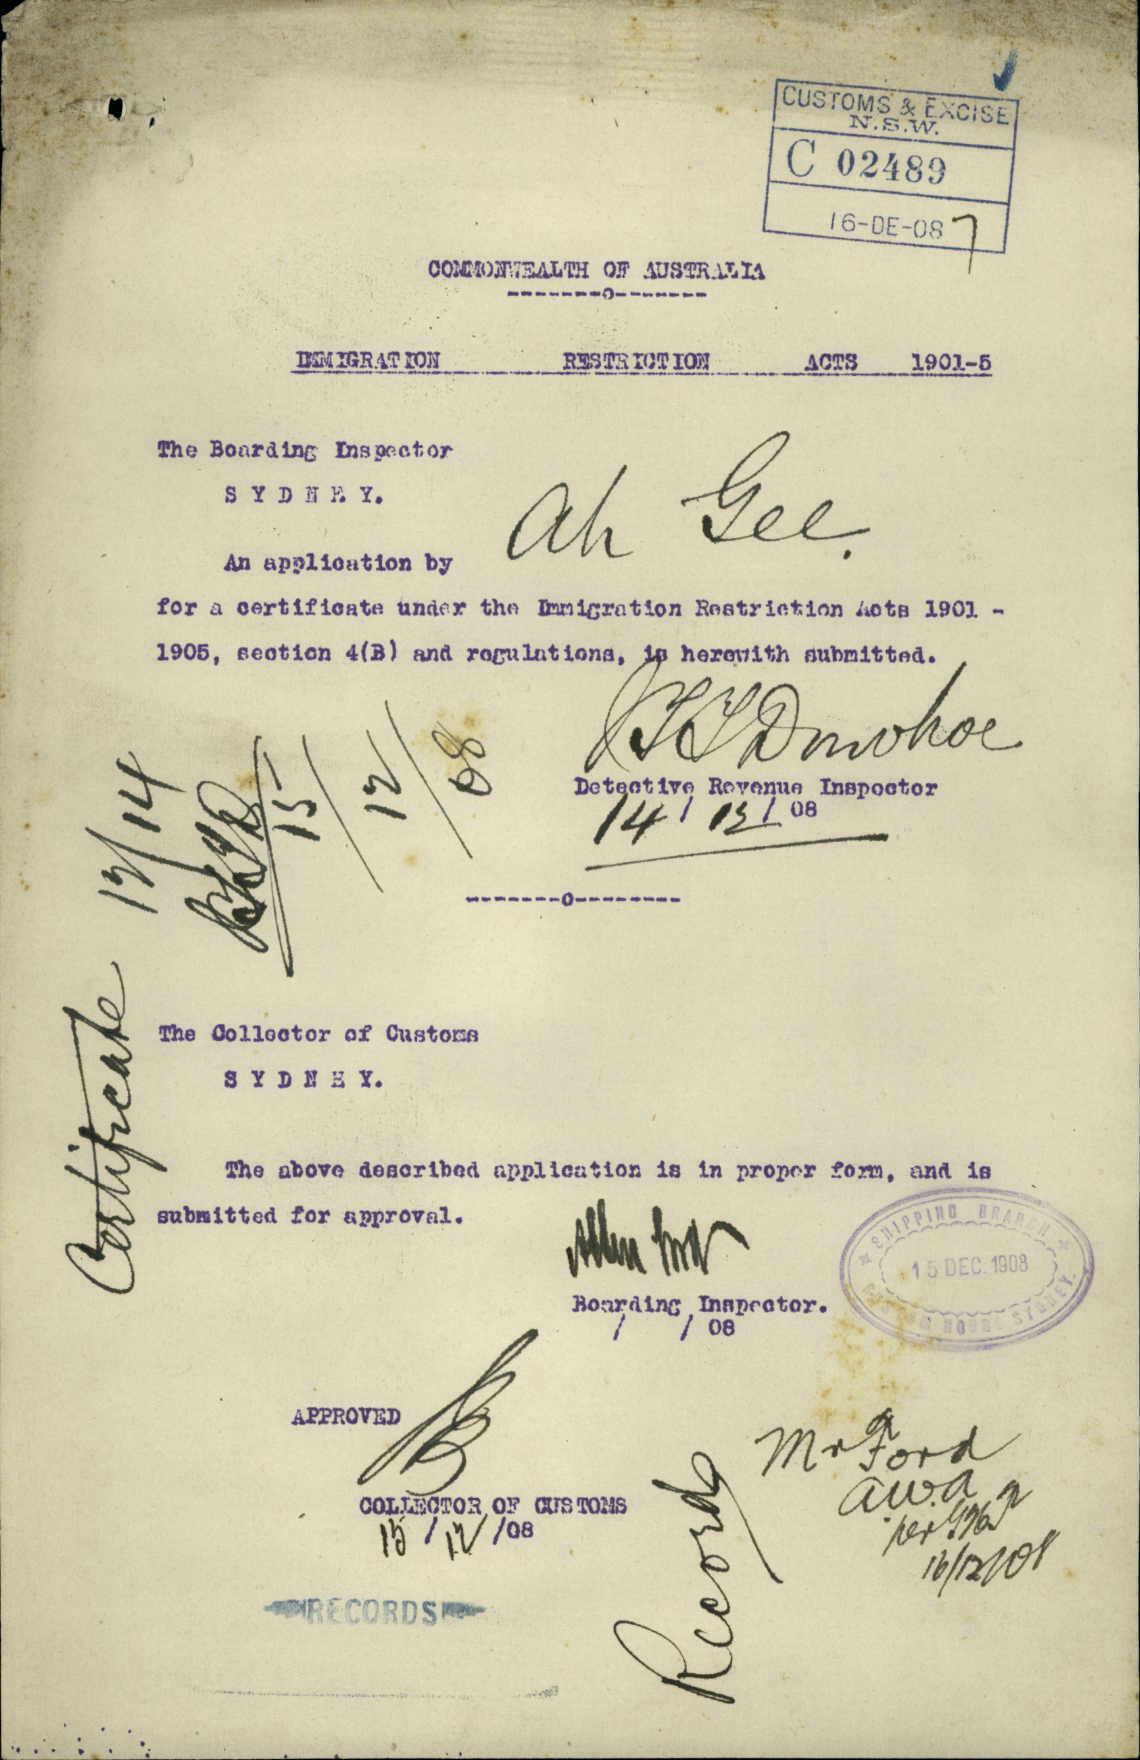 CUSTOMS & EXCISE
N.S.W.
C 02489
16-DE-08 7
COMMONWEALTH OF AUSTRALIA
-------o-------
IMMIGRATION RESTRICTION ACTS 1901-5
The Boarding Inspector
SYDNEY.
An application by Ah Gee.
for a certificate under the Immigration Restriction Acts 1901 -
1905, section 4(B) and regulations, is herewith submitted.
Donohoe
Detective Revenue Inspector
14/12/08
-------o--------
15/12/08
Certificate 12/14
The Collector of Customs
SYDNEY.
The above described application is in proper form, and is
submitted for approval.
Boarding Inspector.
/ / 08
SHIPPING BRANCH
15 DEC. 1908
CUSTOM HOUSE SYDNEY.
APPROVED
COLLECTOR OF CUSTOMS
15/12/08
RECORDS
Records
Mr Ford
a.w.a
per
16/12/08